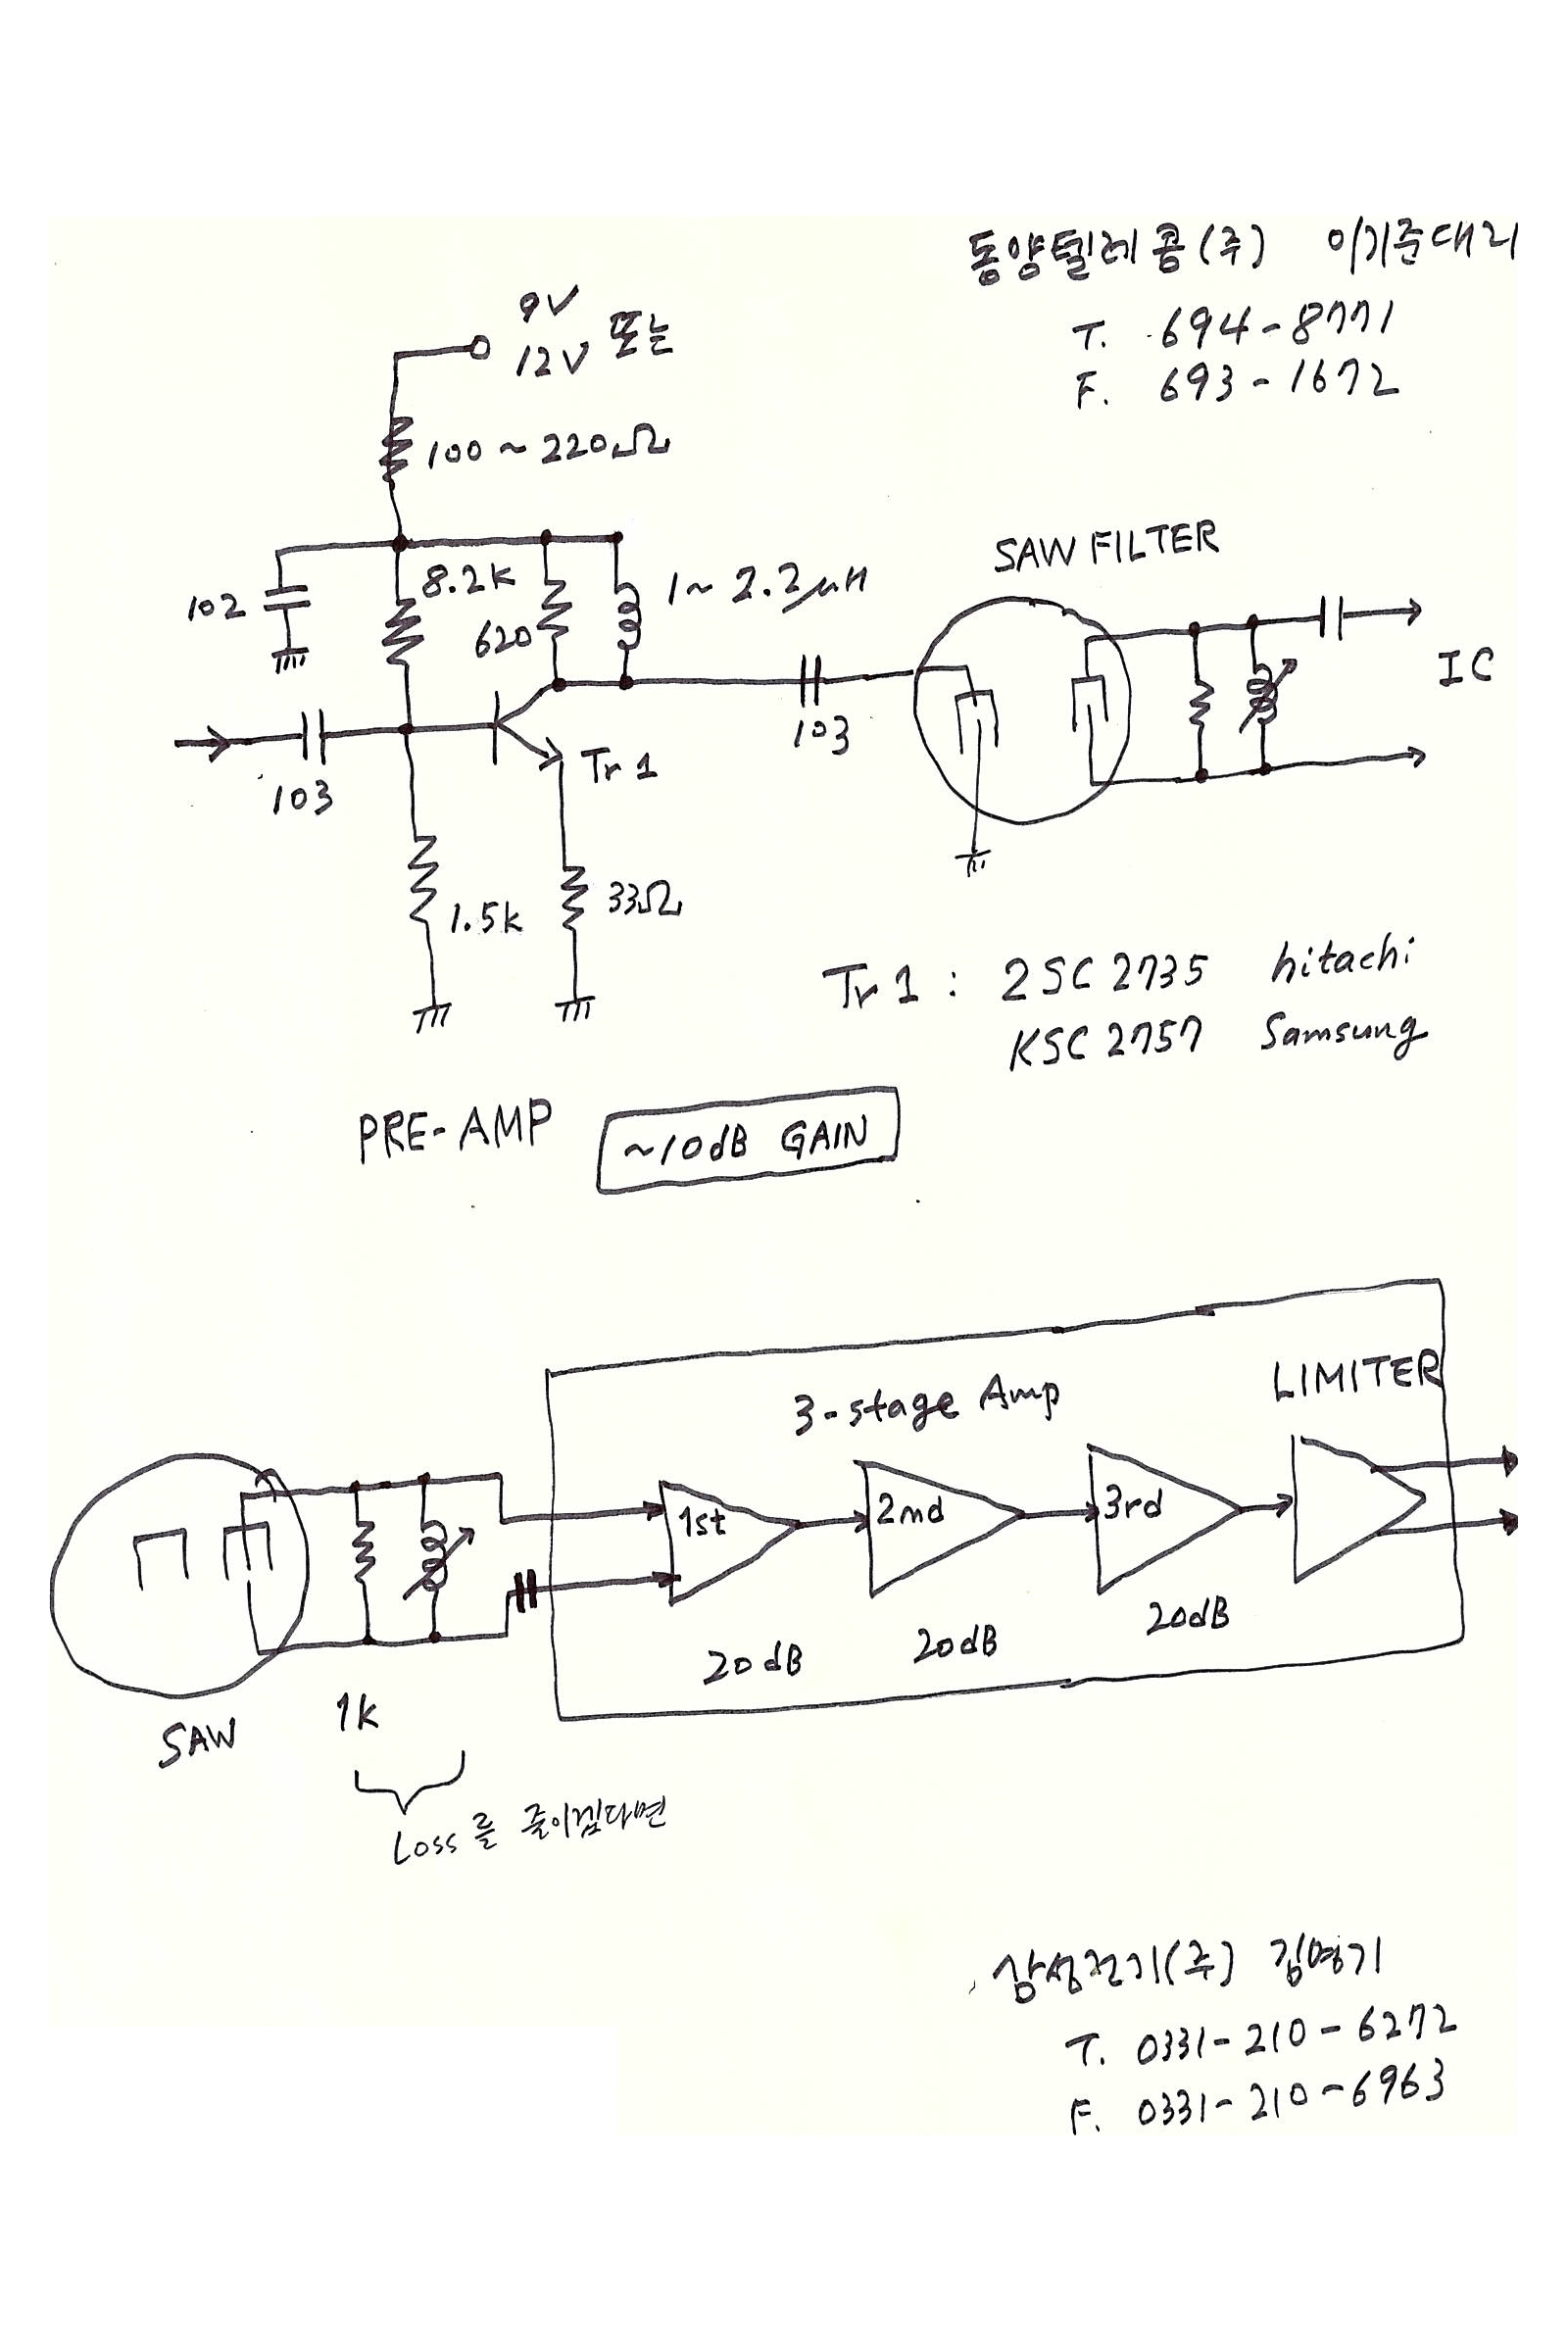 동양텔레콤(주) 이기준대리
T. 694-8771
F. 693-1672
9V
12V 또는
100~220Ω
102
8.2K
620
1~2.2μH
SAW FILTER
IC
103
103
Tr 1
1.5k
33Ω
Tr 1 : 2SC 2735 hitachi
KSC 2757 Samsung
PRE-AMP
~10dB GAIN
LIMITER
3-stage Amp
1st
2nd
3rd
20dB
20dB
20dB
SAW
1k
Loss를 줄이겠다면
삼성전기(주) 김영기
T. 0331-210-6272
F. 0331-210-6963